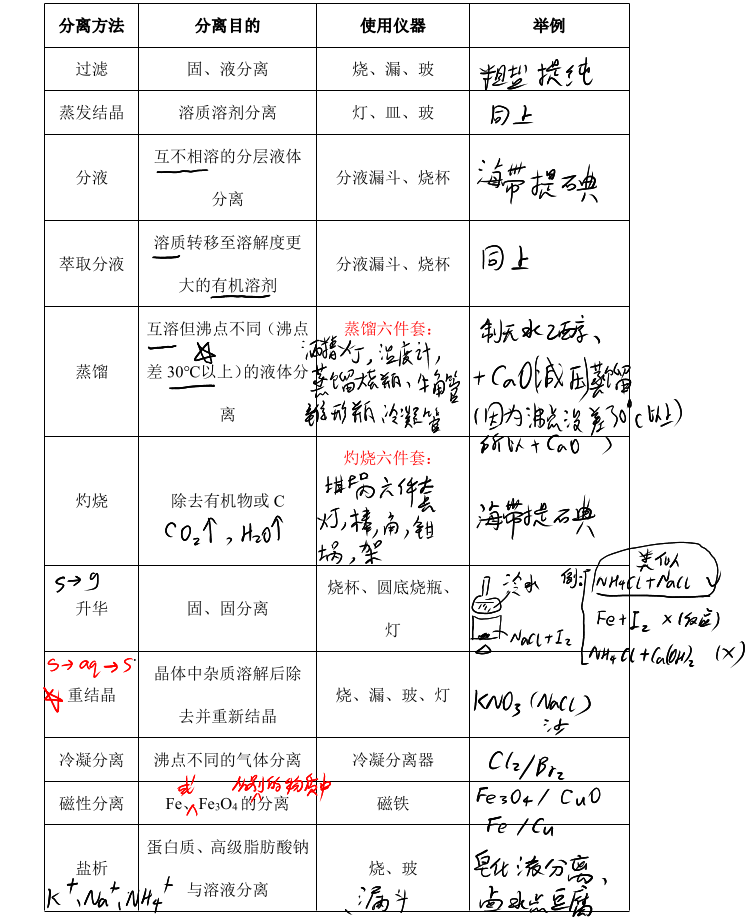 分离方法 分离目的 使用仪器 举例
过滤 固、液分离 烧、漏、玻 粗盐提纯
蒸发结晶 溶质溶剂分离 灯、皿、玻 同上
互不相溶的分层液体
分液 分液漏斗、烧杯 海带提石典
分离
溶质转移至溶解度更
萃取分液 分液漏斗、烧杯 同上
大的有机溶剂
互溶但沸点不同（沸点 蒸馏六件套： 制无水乙醇、
酒精灯，温度计，
蒸馏 差 30℃以上）的液体分 蒸馏烧瓶、牛角管 +CaO(减压)蒸馏
离 锥形瓶、冷凝管 (因为沸点没差30℃以上)
所以+CaO )
灼烧六件套：
灼烧 除去有机物或 C 坩埚六件套
CO₂↑，H₂O↑ 灯，棒，角，钳 海带提石典
埚，架
S→g 烧杯、圆底烧瓶、 冷水 例： 类似
NH₄Cl+NaCl √
升华 固、固分离 Fe+I₂ ×(反应)
灯 NaCl+I₂
NH₄Cl+Ca(OH)₂ (×)
S→aq→S 晶体中杂质溶解后除
重结晶 烧、漏、玻、灯 KNO₃(NaCl)
去并重新结晶
冷凝分离 沸点不同的气体分离 冷凝分离器 Cl₂/Br₂
或 分别的物质中
磁性分离 Fe、Fe₃O₄的分离 磁铁 Fe₃O₄/CuO
Fe/Cu
蛋白质、高级脂肪酸钠
盐析 烧、玻 皂化液分离、
K⁺、Na⁺、NH₄⁺ 与溶液分离 、漏斗 卤水点豆腐